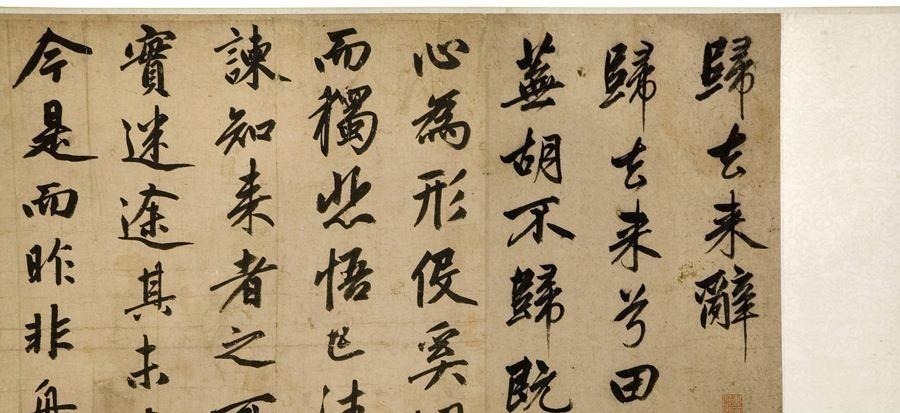 歸去来辭
歸去来兮田
蕪胡不歸既
心為形役奚
而獨悲悟已
諫知来者之
實迷途其未
今是而昨非